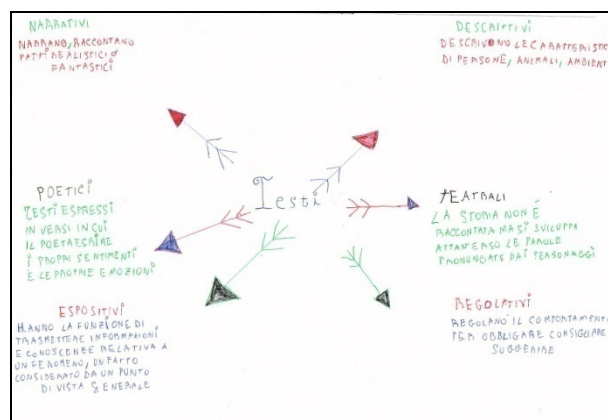 NARRATIVI
NARRANO, RACCONTANO
FATTI REALISTICI O
FANTASTICI
DESCRITTIVI
DESCRIVONO LE CARATTERISTIC
DI PERSONE, ANIMALI, AMBIENT
Testi
POETICI
TESTI ESPRESSI
IN VERSI IN CUI
IL POETA ESRIME
I PROPRI SENTIMENTI
E LE PROPRIE EMOZIONI
TEATRALI
LA STORIA NON É
RACCONTATA MA SI SVILUPPA
ATTRAVERSO LE PAROLE
PRONUNCIATE DAI PERSONAGGI
ESPOSITIVI
HANNO LA FUNZIONE DI
TRASMETTERE INFORMAZIONI
E CONOSCENZE RELATIVA A
UN FENOMENO, UN FATTO
CONSIDERATO DA UN PUNTO
DI VISTA GENERALE
REGOLATIVI
REGOLANO IL COMPORTAMENT
PER OBBLIGARE CONSIGLIARE
SUGGERIRE